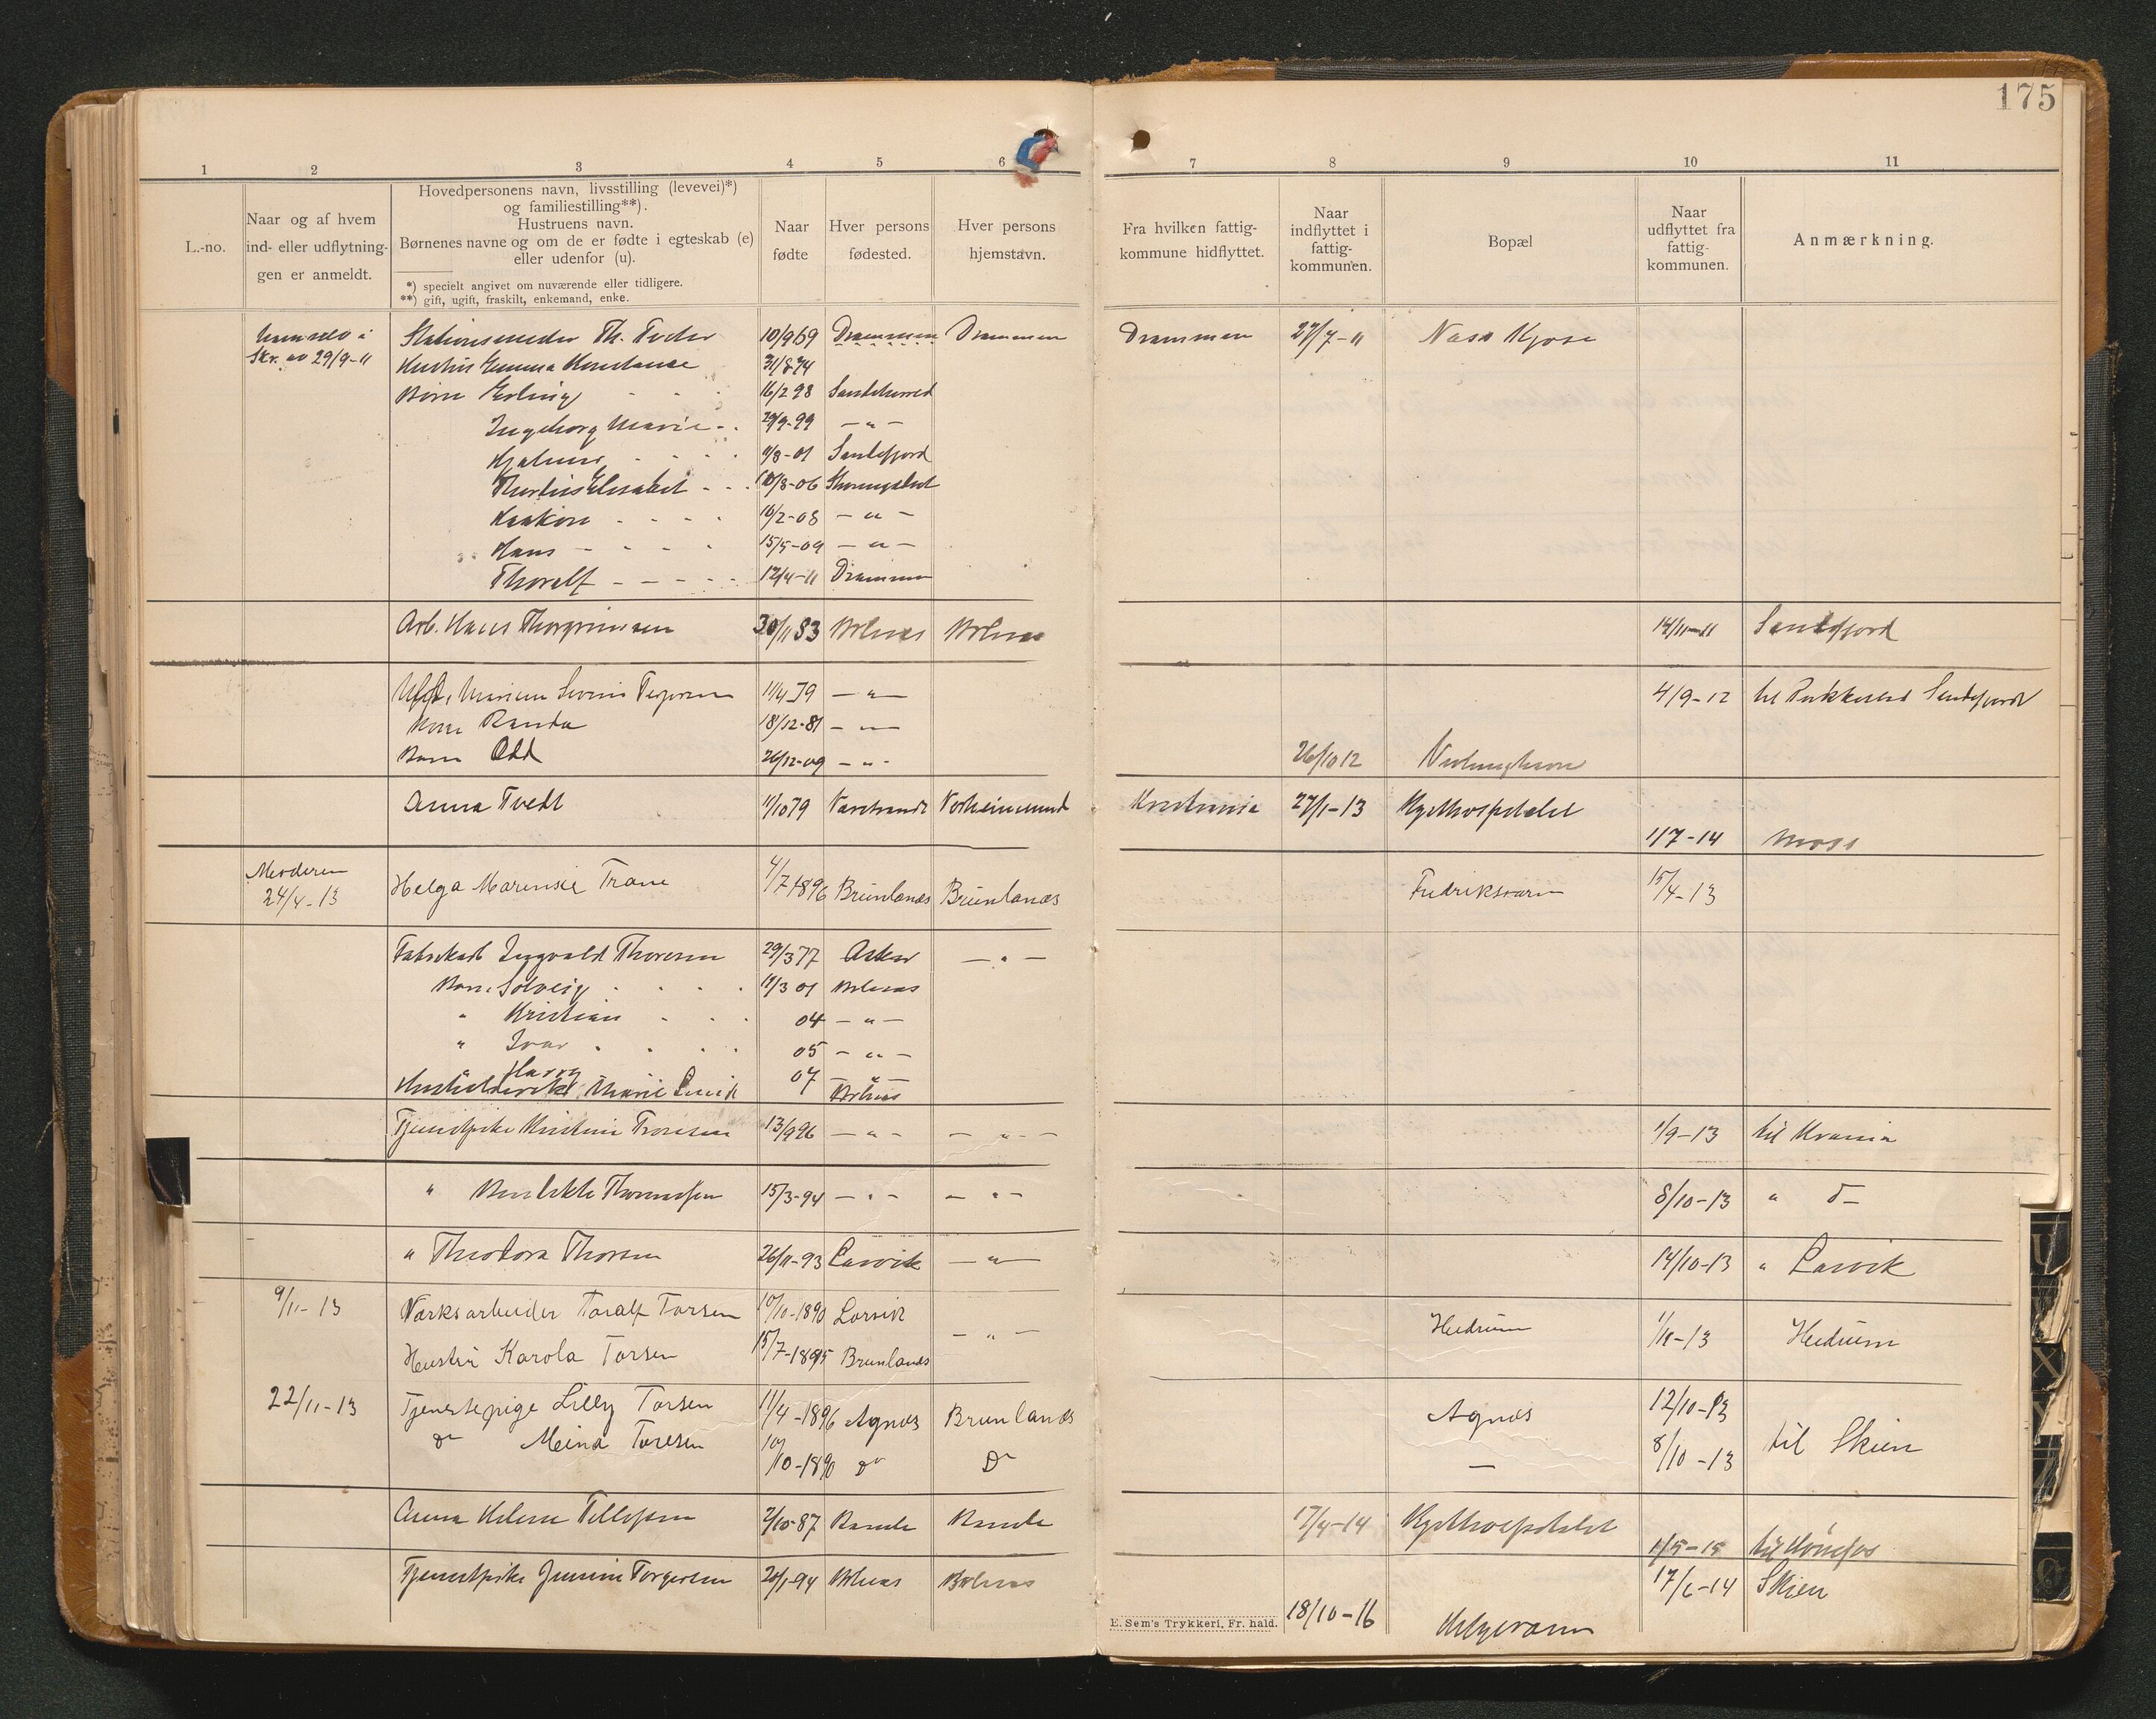 175
1 2 3 4 5 6 7 8 9 10 11
L.-no.
Naar og af hvem
ind- eller udflytnin-
gen er anmeldt.
Hovedpersonens navn, livsstilling (levevei)*)
og familiestilling**).
Hustruens navn.
Børnenes navne og om de er fødte i egteskab (e)
eller udenfor (u).
*) specielt angivet om nuværende eller tidligere.
**) gift, ugift, fraskilt, enkemand, enke.
Naar
fødte
Hver persons
fødested.
Hver persons
hjemstavn.
Fra hvilken fattig-
kommune hidflyttet.
Naar
indflyttet i
fattig-
kommunen.
Bopæl
Naar
udflyttet fra
fattig-
kommunen.
Anmærkning.
Th. 10/9 69 Drammen Drammen Drammen 27/7-11 Kjose
Skr. av 29/9-11 Hustru Emma Konstanse 31/8 74
Børn Erling 16/2 98 Sandeherred
Ingeborg Marie 29/9-99 — " —
Hjalmar 9/8-01 Sandefjord
Elisabet 10/8-06
Haakon 10/2-08 — " —
Hans 15/5-09 — " —
Thoralf 12/4-11 Drammen
Arb. Hans Thorgrimsen 30/11 83 Brlnæs Brlnæs 14/11-11 Sandefjord
11/4 79 — " — 4/9-12 til Sandefjord
Kone Randa 18/12-81 — " —
Barn Odd 26/12-09 — " — 26/10 12
Anna Tvedt 11/10 79 Norheimsund Kristiania 27/1-13 Kysthospitalet
1/7-14 Moss
Moderen
24/4-13 Helga Marensie Trane 4/7 1896 Brunlanæs Brunlanæs Fredriksværn 15/4-13
Fabrikarb Ingvald Thoresen 29/3 77 Asker — " —
Barn Solveig 11/3 01 Brlnæs
" Kristian 04 — " —
" Ivar 05 — " —
Harry 07 — " —
Marie Brlnæs
Tjenestpike Kristine Toresen 13/9 96 — " — — " — 1/9-13 til Krania
" 15/3-94 — " — — " — 8/10-13 " d—
" Theodora Thorsen 26/11-93 Larvik — " — 14/10-13 " Larvik
9/11-13 Værksarbeider Toralf Torsen 10/10-1890 Larvik — " — Hedrum 1/11-13 Hedrum
Hustru Karola Torsen 15/7-1895 Brunlanæs
22/11-13 Tjenestepige Lilly Torsen 11/4-1896 Agnæs Brunlanæs Agnæs 12/10-13
do Meina Toresen 10/10-1890 do Do — 8/10-13 til Skien
Anna Helene Tellefsen 2/10-87 Bamle Bamle 17/4-14 Kysthospitalet
1/5-15 til Hønefos
Tjenestpike Torgersen 20/1-94 Brlnæs Brlnæs 17/6-14 Skien
18/10-16 Helgeroen
E. Sem's Trykkeri, Fr. hald.